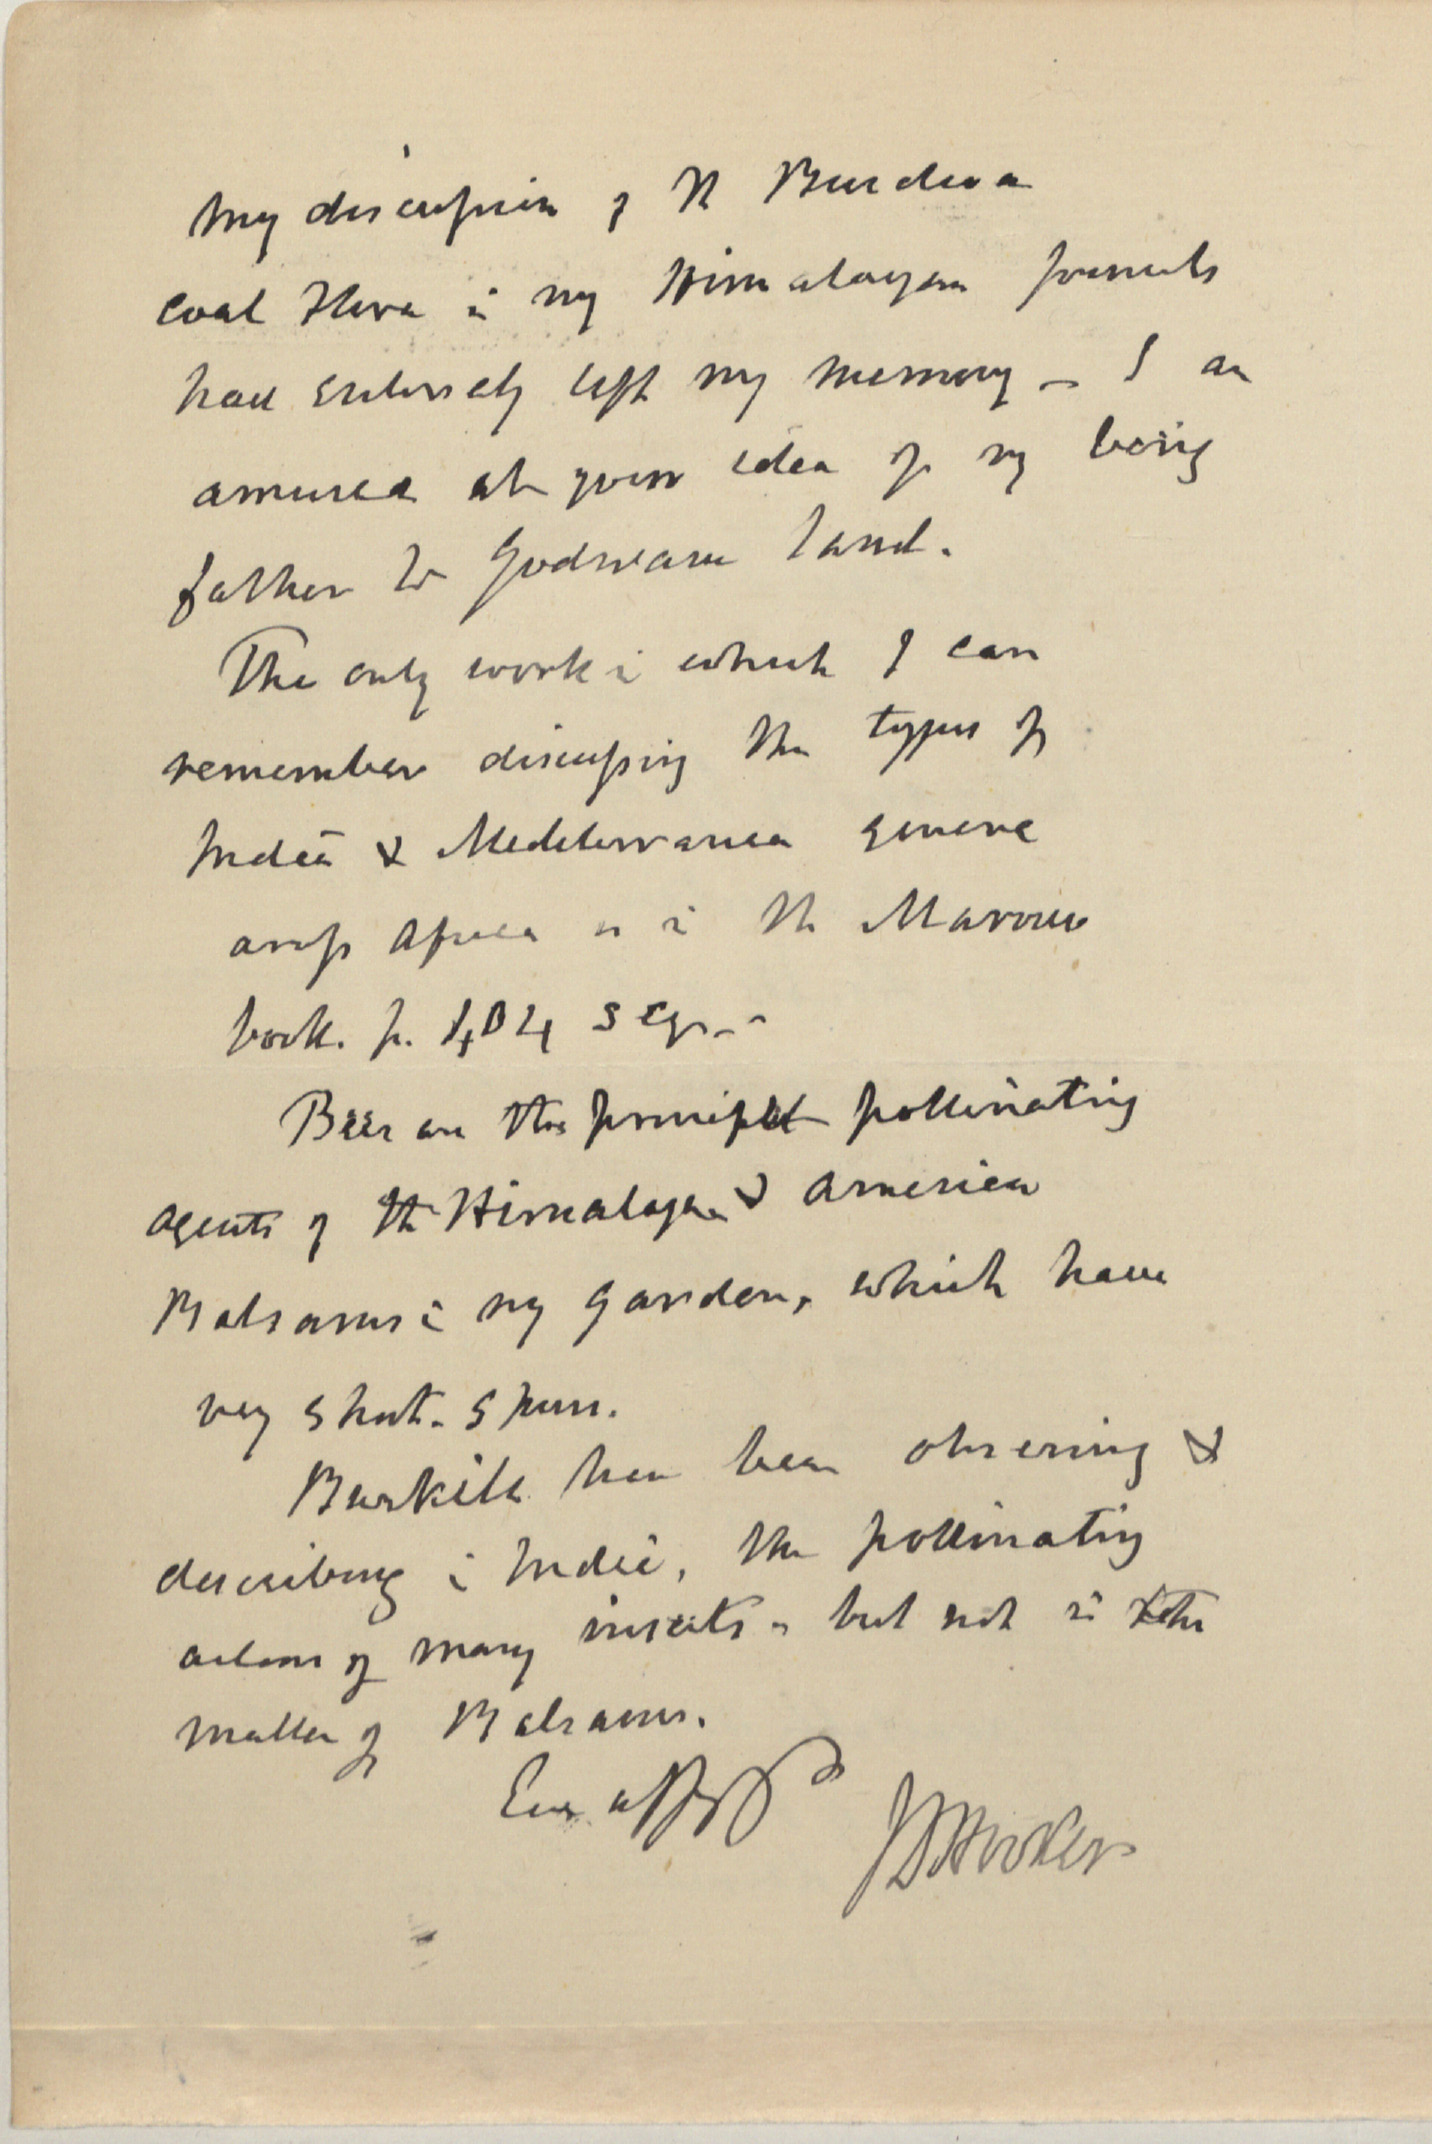 My discussion of the Burdwan
coal Flora in my Himalayan Journals
had entirely left my memory — I am
amused at your idea of my being
father to Gondwana land.
The only work in which I can
remember discussing the types of
Indian & Mediterranean genera
across Africa is in the Marocco
book. p. 404 seq. —
Bees are the principal pollinating
agents of the Himalayan & American
Balsams in my garden, which have
very short spurs.
Burkill has been observing &
describing in India, the pollinating
actions of many insects - but not in the
matter of Balsams.
Ever
J D Hooker